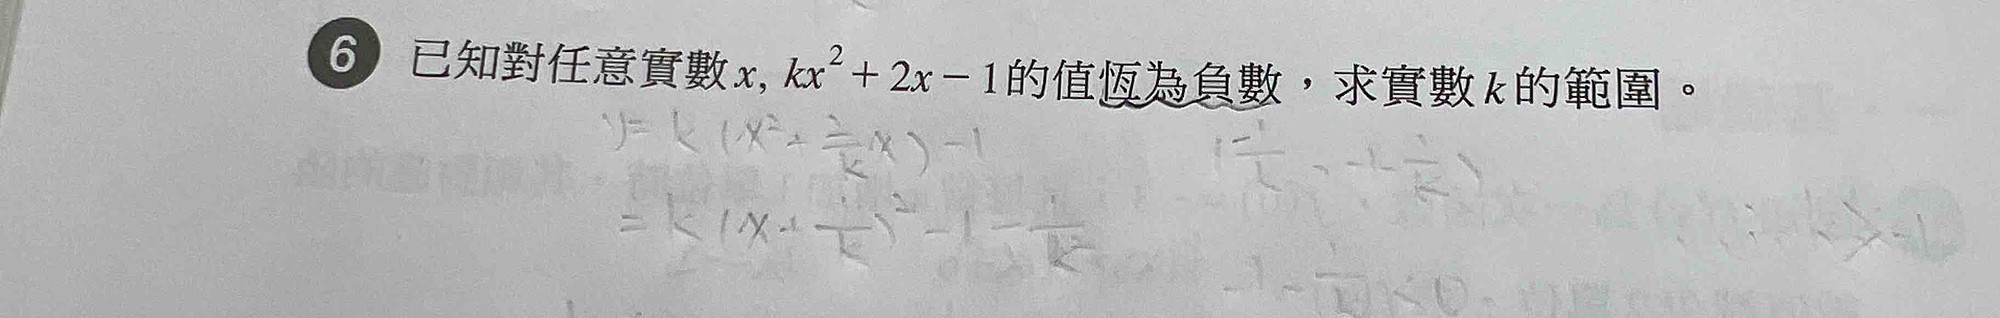 6 已知對任意實數x, kx²+2x−1的值恆為負數，求實數k的範圍。
y= k(x²+2/k x)-1
(-1/k, -1-1/k)
= k(x+1/k)²-1-1/k
-1-1/k<0